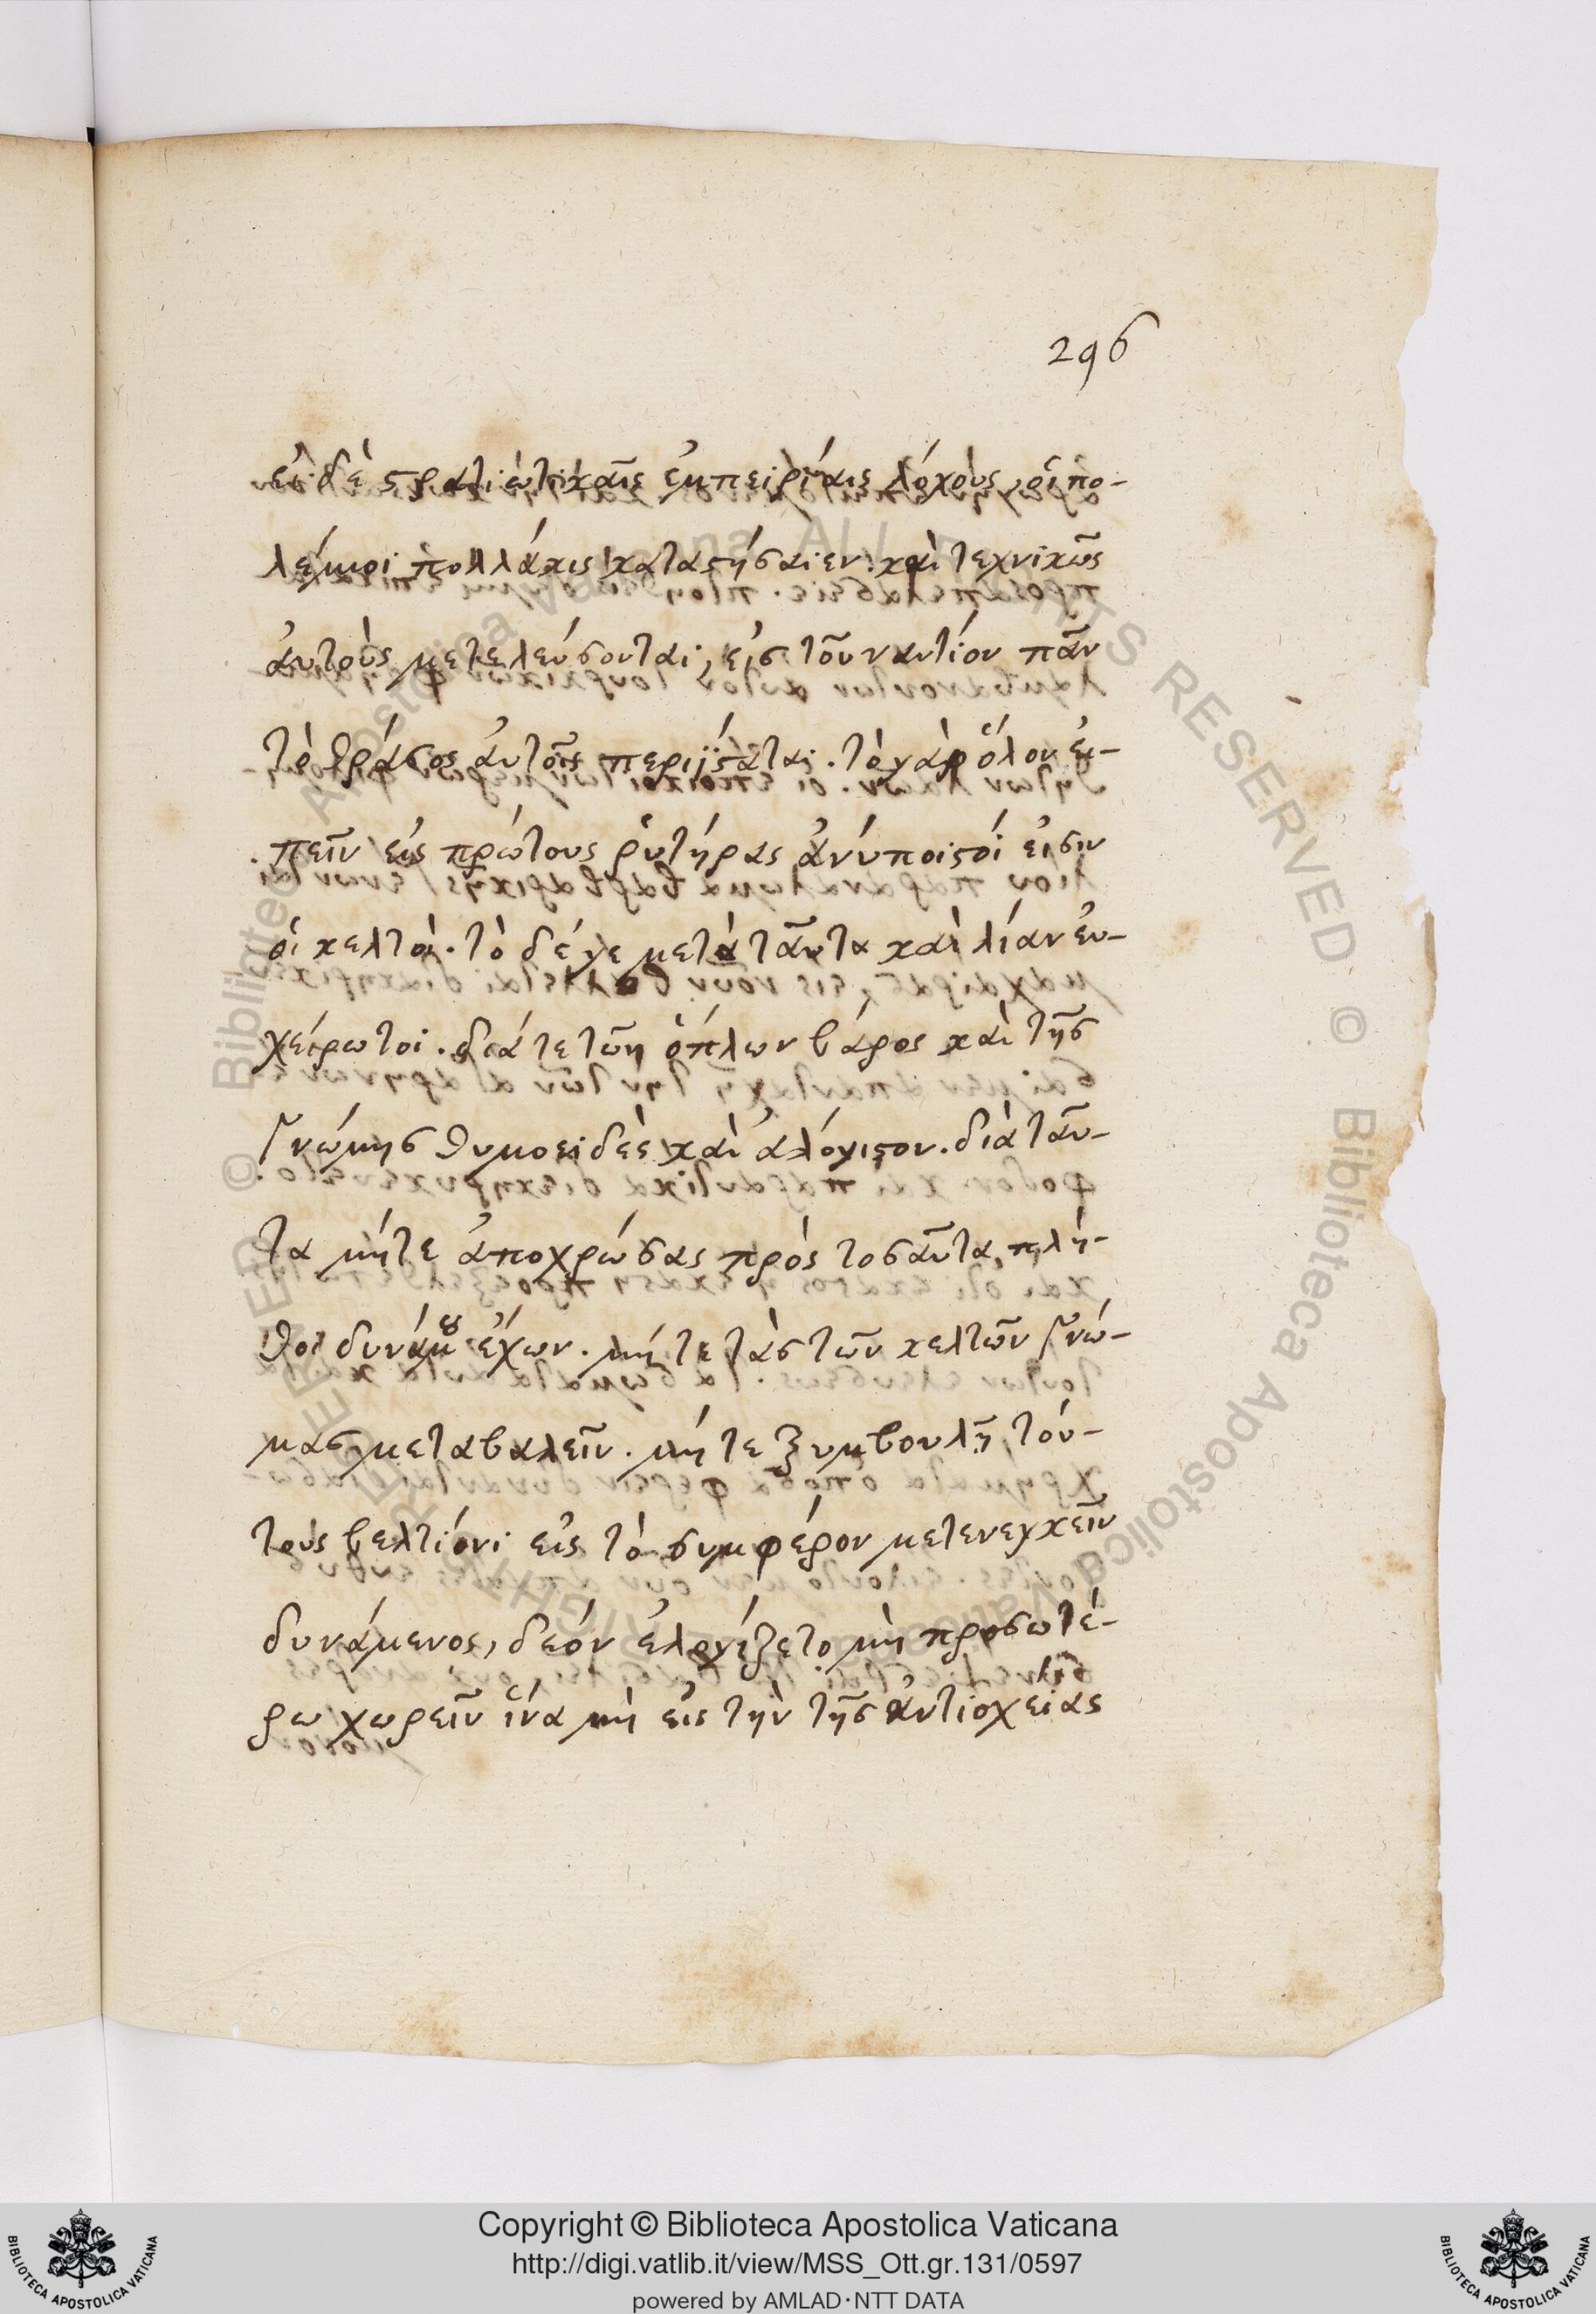 296
εἰ δὲ στρατιωτικαῖς ἐμπειρίαις λόχους, οἱ πο-
λέμιοι πολλάκις καταστήσαιεν. καὶ τεχνικῶς
ἀυτοὺς μετελεύσονται, εἰς τοὐναντίον πᾶν
τὸ θράσος ἀυτοῖς περιΐσταται. τὸ γὰρ ὅλον εἰ-
πεῖν εἰς πρώτους ῥυτήρας ἀνύποιστοί εἰσιν
οἱ κελτοὶ. τὸ δέ γε μετὰ ταῦτα καὶ λίαν ἐυ-
χείρωτοι. διά τε τῶν ὁπλων βάρος καὶ τῆς
γνώμης θυμοειδὲς καὶ ἀλόγιστον. διὰ ταῦ-
τα μήτε ἀποχρώσας πρὸς τοσαῦτα πλή-
θοι δυνάμ ἔχων. μήτε τὰς τῶν κελτῶν γνώ-
μας μεταβαλεῖν. μήτε ξυμβουλῇ τού-
τους βελτίονι εἰς τὸ συμφέρον μετενεγκεῖν
δυνάμενος, δεόν ἐλογίζετο μὴ προσωτέ-
ρω χωρεῖν ἵνα μὴ εἰς τὴν τῆς ἀντιοχείας
Copyright © Biblioteca Apostolica Vaticana
http://digi.vatlib.it/view/MSS_Ott.gr.131/0597
powered by AMLAD·NTT DATA
BIBLIOTECA APOSTOLICA VATICANA
BIBLIOTECA APOSTOLICA VATICANA